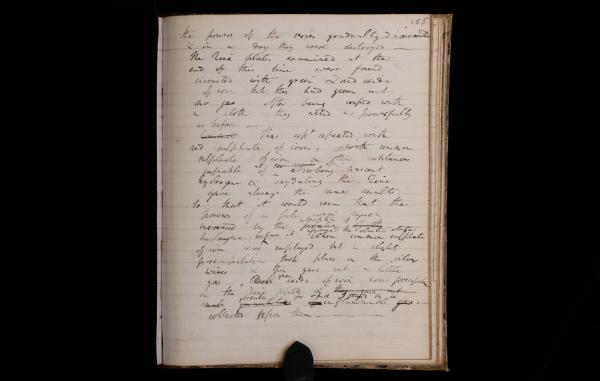 155
the powers of the wires gradually diminished
& in a day they were destroyed —
The Zinc plates examined at the
end of this time were found
incrusted with green & red oxide
of iron but they had given out
no gas. After being wiped with
a cloth they acted as powerfully
as before —
This expt repeated with
red sulphate of iron; with common
sulphate of iron & other substances
capable of absorbing nascent
hydrogen & oxydating the Zinc
gave always the same results
So that it would seem that the
powers of a pile were
increased by the
hydrogene before it the elastic state
When common sulphate
of iron was employed but a slight
precipitation took place on the silver
wires & they gave out a little
gas oxide of iron was precipitated
on the Zinc plates &
inflammable
collected upon them —